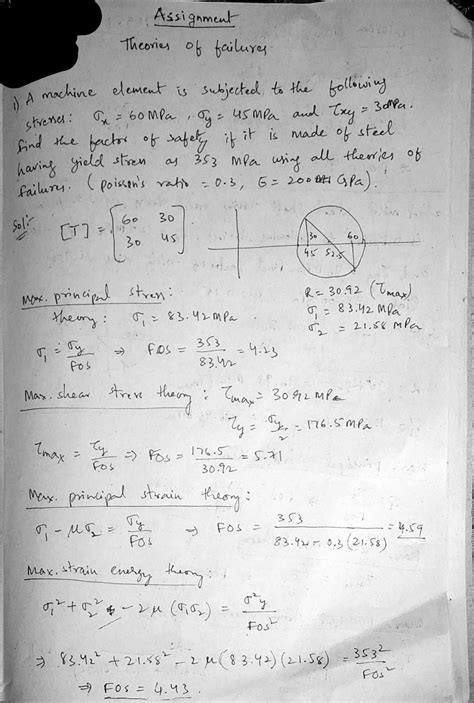 Assignment
Theories of failures
1) A machine element is subjected to the following
stresses: σx = 60 MPa, σy = 45 MPa and τxy = 30 MPa.
find the factor of safety if it is made of steel
having yield stress as 353 MPa using all theories of
failures. (poisson's ratio = 0.3, E = 200 GPa).
Sol:-
[T] = [60 30
30 45]
30 60
45 52.5
R = 30.92 (τmax)
σ1 = 83.42 MPa
σ2 = 21.58 MPa
Max. principal stress:
theory: σ1 = 83.42 MPa
σ1 = σy/FOS ⇒ FOS = 353/83.42 = 4.23
Max. shear stress theory: τmax = 30.92 MPa
τy = σy/2 = 176.5 MPa
τmax = τy/FOS ⇒ FOS = 176.5/30.92 = 5.71
Max. principal strain theory:
σ1 - μσ2 = σy/FOS ⇒ FOS = 353/83.42 - 0.3(21.58) = 4.59
Max. strain energy theory:
σ1² + σ2² - 2μ(σ1σ2) = σ²y/FOS²
⇒ 83.42² + 21.58² - 2μ(83.42)(21.58) = 353²/FOS²
⇒ FOS = 4.43